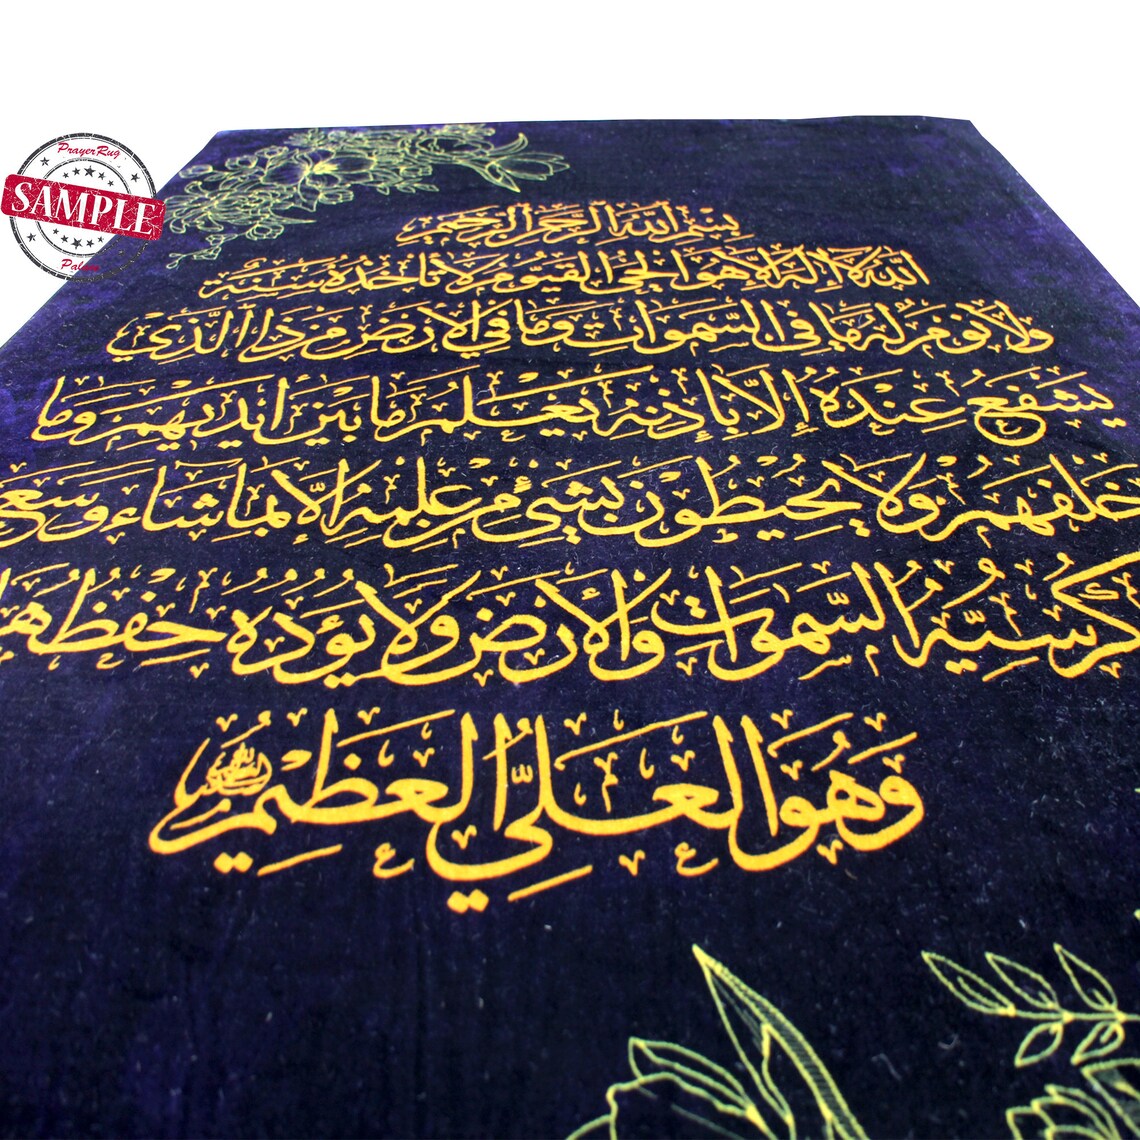 PrayerRug
SAMPLE
بِسْمِ اللهِ الرَّحْمٰنِ الرَّحِيمِ
اَللهُ لَا إِلٰهَ إِلَّا هُوَ الْحَيُّ الْقَيُّومُ لَا تَأْخُذُهُ سِنَةٌ
وَلَا نَوْمٌ لَهُ مَا فِي السَّمٰوَاتِ وَمَا فِي الْأَرْضِ مَنْ ذَا الَّذِي
يَشْفَعُ عِنْدَهُ إِلَّا بِإِذْنِهِ يَعْلَمُ مَا بَيْنَ أَيْدِيهِمْ وَمَا
خَلْفَهُمْ وَلَا يُحِيطُونَ بِشَيْءٍ مِنْ عِلْمِهِ إِلَّا بِمَا شَاءَ وَسِعَ
كُرْسِيُّهُ السَّمٰوَاتِ وَالْأَرْضَ وَلَا يَؤُدُهُ حِفْظُهُمَا
وَهُوَ الْعَلِيُّ الْعَظِيمُ